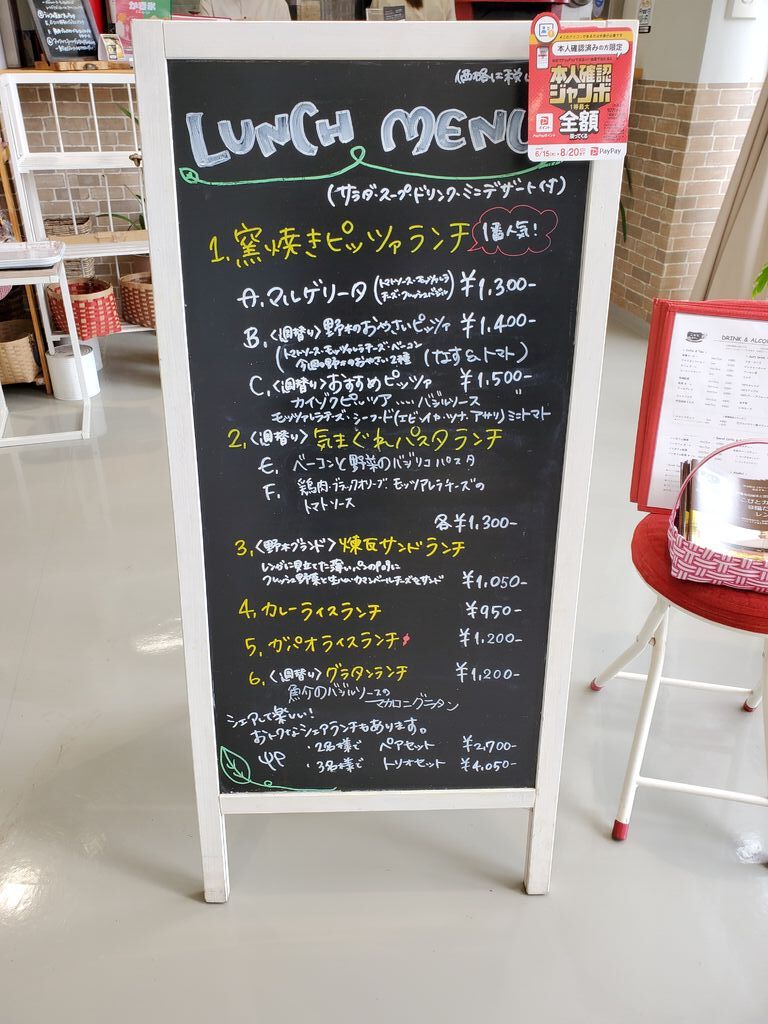 価格は税
LUNCH MENU
(サラダ・スープ・ドリンク・ミニデザート付)
1. 窯焼きピッツァランチ 1番人気!
A. マルゲリータ (トマトソース・モッツァレラチーズ・フレッシュバジル) ¥1,300-
B. 〈週替り〉野木のおやさいピッツァ ¥1,400-
(トマトソース・モッツァレラチーズ・ベーコン
今週の野木のおやさい2種 (なす&トマト)
C. 〈週替り〉おすすめピッツァ ¥1,500-
カイゾクピッツァ ‥‥ バジルソース
モッツァレラチーズ・シーフード(エビ・イカ・ツナ・アサリ)ミニトマト
2. 〈週替り〉気まぐれパスタランチ
E. ベーコンと野菜のバジリコパスタ
F. 鶏肉・ブラックオリーブ モッツアレラチーズの
トマトソース
各¥1,300-
3. 〈野木ブランド〉煉瓦サンドランチ
レンガに見立てた薄いパンの中に
フレッシュ野菜と生ハム・カマンベールチーズをサンド ¥1,050-
4. カレーライスランチ ¥950-
5. ガパオライスランチ ¥1,200-
6. 〈週替り〉グラタンランチ ¥1,200-
魚介のバジルソースの
マカロニグラタン
シェアして楽しい!
おトクなシェアランチもあります。
・2名様で ペアセット ¥2,700-
・3名様で トリオセット ¥4,050-
本人確認済みの方限定
本人確認
ジャンボ
1等最大
全額
戻ってくる
PayPayポイント
6/15(木)▶8/20(日)
PayPay
DRINK & ALCO